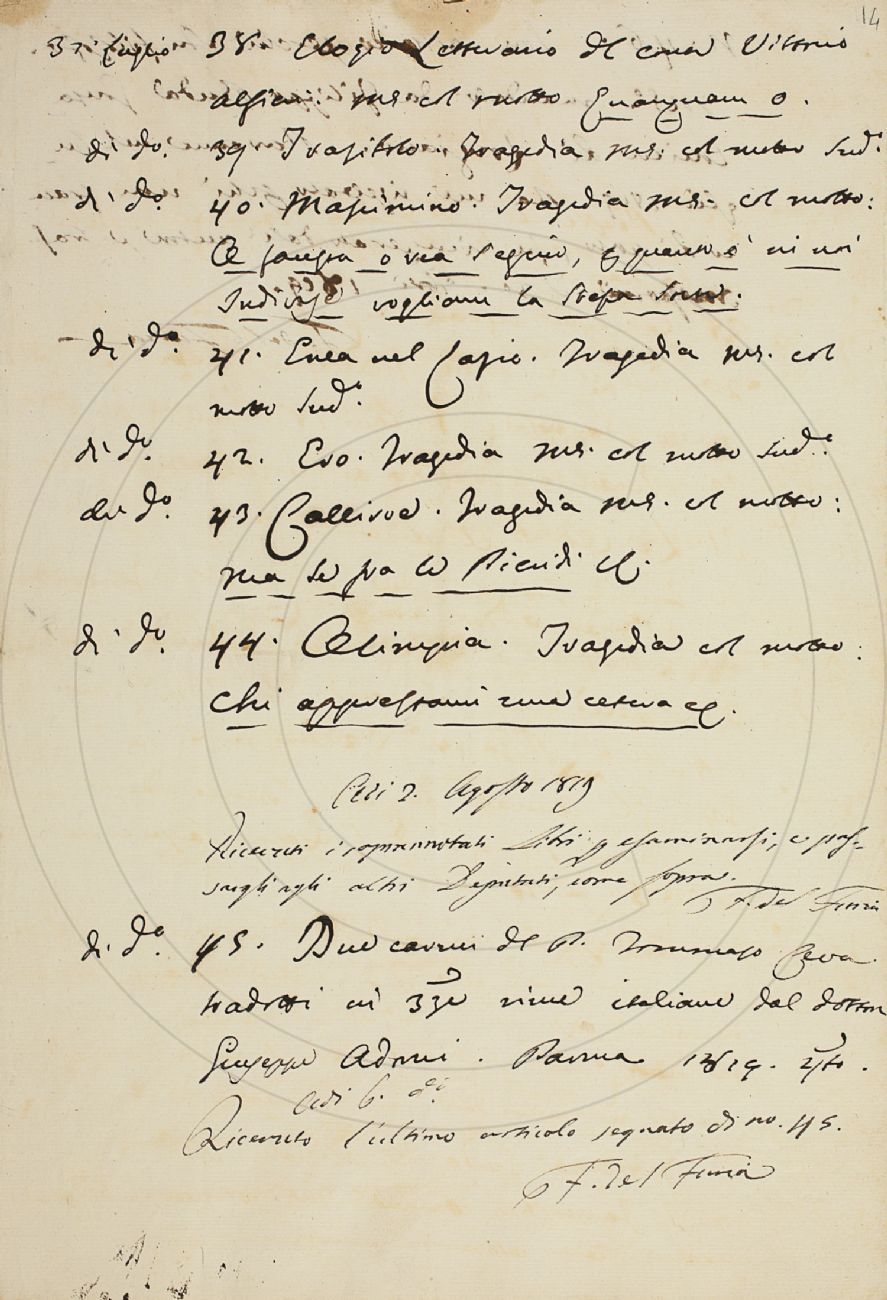 14
31 Luglio 38 Elogio Letterario del conte Vittorio
Alfieri. ms. col motto Quanquam o.
di do. 39 Tragedia ms. col motto sudo.
di do. 40. Massimino. Tragedia ms. col motto:
O sangra o via seguio, quanto è in noi
vogliam la stessa
di do. 41. Enea nel Lazio. Tragedia ms. col
motto sudo.
di do. 42. Ero. Tragedia ms. col motto sudo.
di do. 43. Calliroe. Tragedia ms. col motto:
ma se fra le Pieridi &.
di do. 44. Olimpia. Tragedia col motto:
Chi appressami una cetera &.
Adi 2. Agosto 1819
Ricevuti i soprannotati Libri p esaminarsi, e pas-
sargli agli altri Deputati, come sopra.
F. del Furia
di do. 45. Due carmi del P. Tommaso Ceva
tradotti in 33e rime italiane dal dottor
Giuseppe Adorni. Parma 1819. 4to.
Adi 6. do.
Ricevuto l'ultimo articolo segnato di no. 45.
F. del Furia